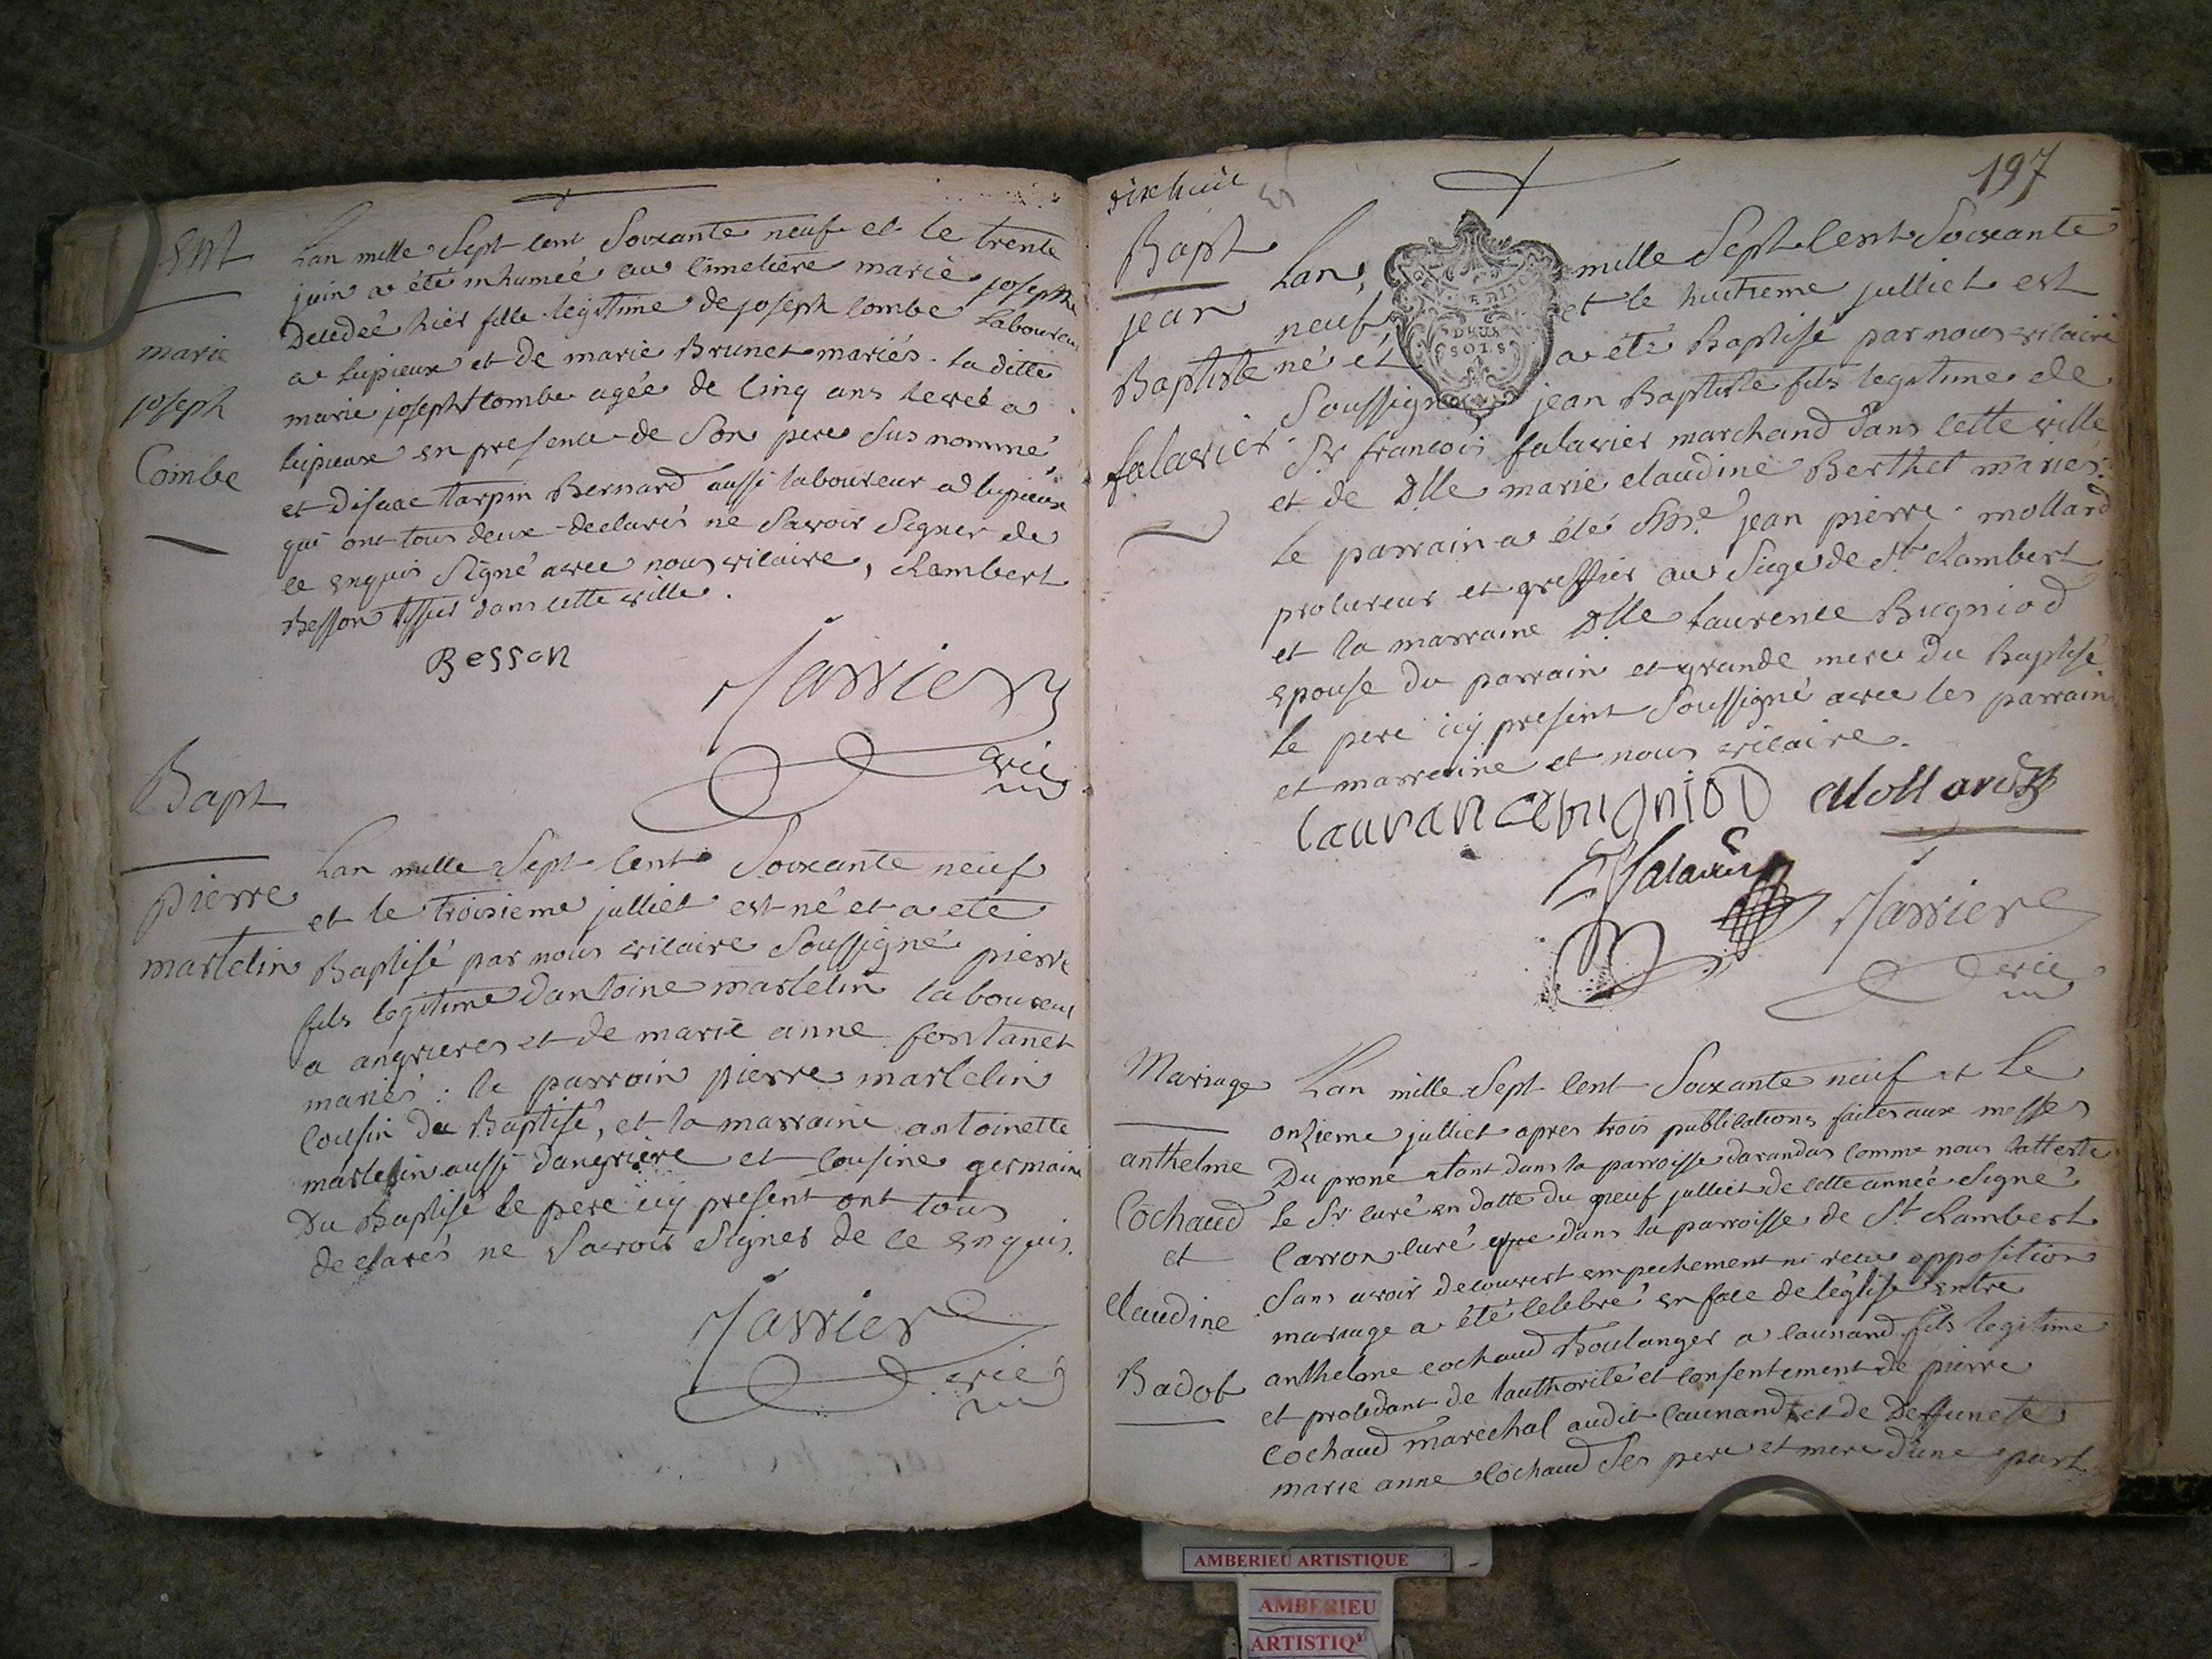 Ent
marie
joseph
Combe
Lan mille Sept cent Soixante neuf et le trente
juin a été inhumée au cimetiere marie josephe
Decedeé hier fille legitime de joseph Combe Laboureur
a Lupieux et de marie Brunet mariés. la ditte
marie josepht Combe agée de cinq ans
lupieux en presence de Son pere Sus nommé
et disaac tarpin Bernard aussi laboureur a lupieux
qui ont tous deux declarés ne Savoir Signer de
ce enquis Signé avec nous vicaire, Rambert
Besson tissier dans cette ville.
Besson
Jarrier
vic
Bapt
pierre
martelin
Lan mille Sept cent Soixante neuf
et le troisieme julliet est né et a ete
Baptisé par nous vicaire Soussigné pierre
fils legitime dantoine martelin laboureur
a angrieres et de marie anne fontanet
mariés : le parrain pierre martelin
Cousin du Baptisé, et la marraine antoinette
martelin aussi dangriere et Cousine germaine
Du Baptisé le pere icy present ont tous
declarés ne Savoir Signer de ce enquis.
Jarrier
vic
dixhuit
197
Bapt
jean
Baptiste
falavier
DEUX
SOLS
Lan mille Sept Cent Soixante
neuf et le huitieme julliet est
né et a eté Baptisé par nous vicaire
Soussigné jean Baptiste fils legitime de
Sr francois falavier marchand dans cette ville
et de Dlle marie claudine Berthet mariés.
le parrain a été jean pierre mollard
procureur et greffier au Siege de St Rambert
et la marraine Dlle Laurence Bugniod
epouse du parrain et grande mere du Baptisé
le pere icy present Soussigné avec les parrain
et marraine et nous vicaire.
lauranCe bugniod Mollard
falavier
Jarrier
vic
Mariage
anthelme
Cochaud
et
claudine
Badof
Lan mille Sept Cent Soixante neuf et Le
onzieme julliet apres trois publications faites aux messes
Du prone tant dans la parroisse darandas comme nous latteste
le Sr curé en datte du neuf julliet de cette année Signé
Carron curé que dans la parroisse de St Rambert
Sans avoir decouvert empechement ni recu opposition
mariage a été celebré en face de leglise entre
anthelme cochaud Boulanger a Caunand fils legitime
et procedant de lauthorité et consentement de pierre
Cochaud marechal audit Caunand et de Deffuncte
marie anne Cochaud Ses pere et mere dune part
AMBERIEU ARTISTIQUE
AMBERIEU
ARTISTIQ